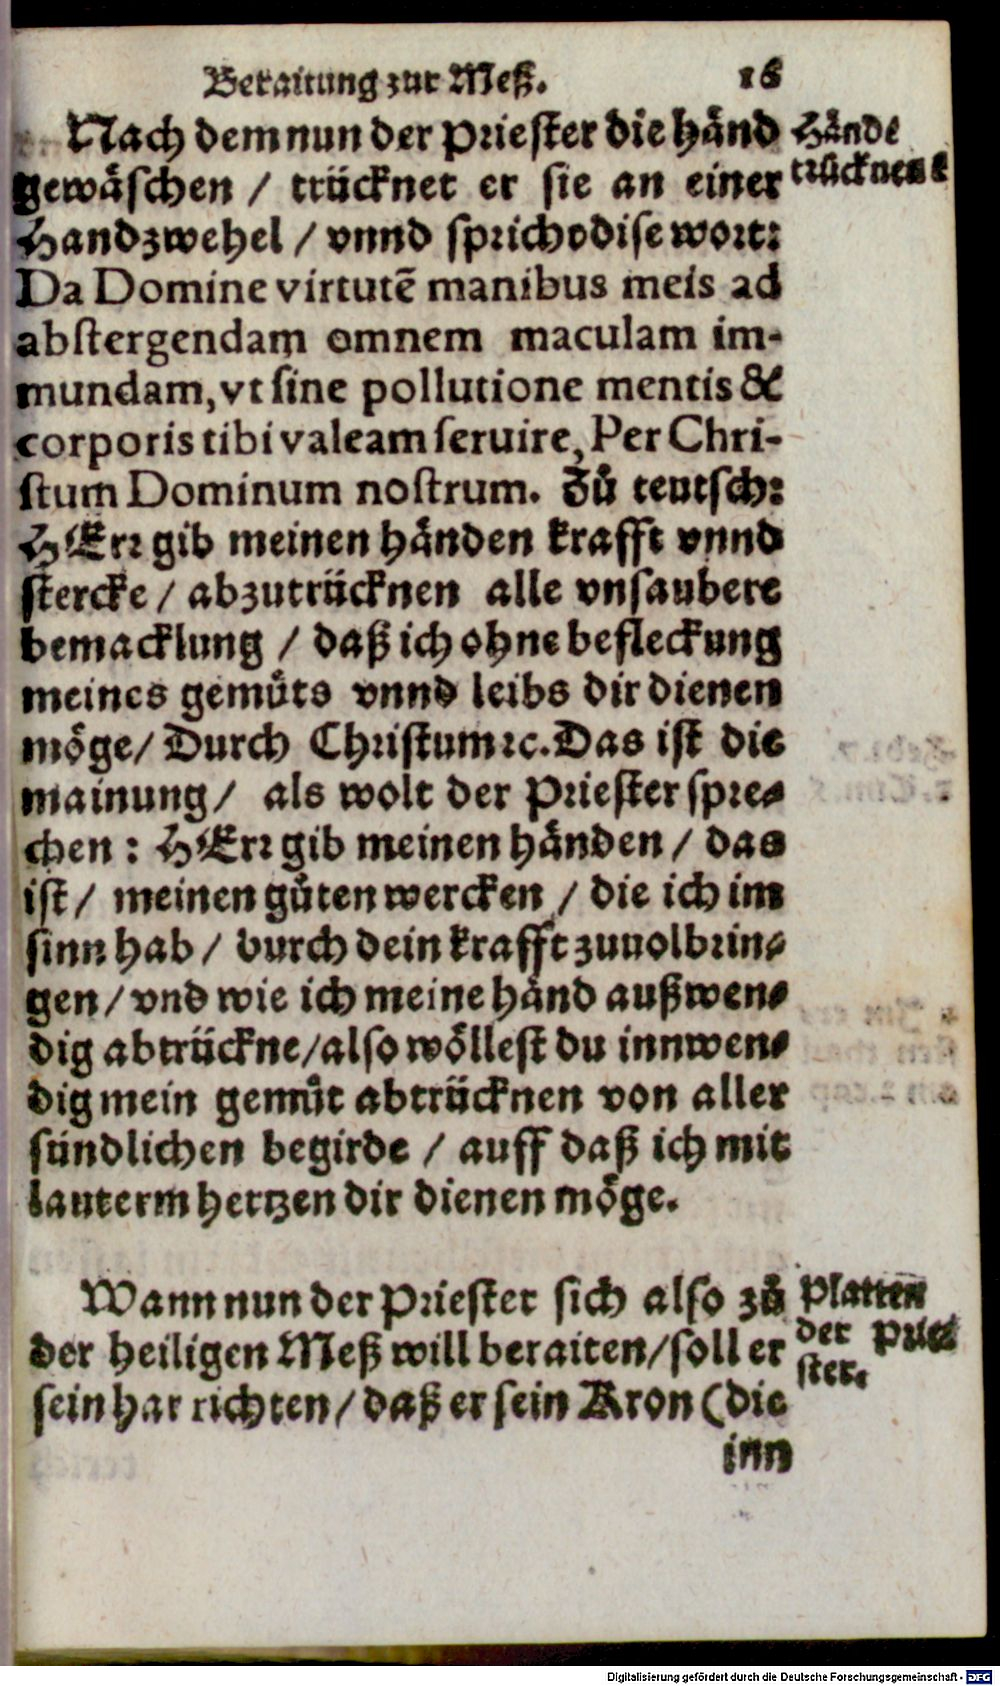 Beraitung zur Meß. 16
Nach dem nun der Priester die händ
gewäschen / trücknet er sie an einer
Handzwehel / vnnd sprich diſe wort:
Da Domine virtutē manibus meis ad
abſtergendam omnem maculam im-
mundam, vt ſine pollutione mentis &
corporis tibi valeam ſeruire, Per Chri-
ſtum Dominum noſtrum. Zů teutſch:
HErr gib meinen händen krafft vnnd
ſtercke / abzutrücknen alle vnſaubere
bemacklung / daß ich ohne befleckung
meines gemůts vnnd leibs dir dienen
möge/ Durch Chriſtum ꝛc. Das iſt die
mainung / als wolt der Prieſter ſpre-
chen : HErr gib meinen händen / das
iſt / meinen gůten wercken / die ich im
ſinn hab / durch dein krafft zuuolbrin-
gen / vnd wie ich meine händ außwen-
dig abtrückne/alſo wölleſt du innwen-
dig mein gemůt abtrücknen von aller
ſündlichen begirde / auff daß ich mit
lauterm hertzen dir dienen möge.
Wann nun der Prieſter ſich alſo zů
der heiligen Meß will beraiten/ſoll er
ſein har richten / daß er ſein Kron (die
inn
Hände
trücknen
Platten
der Prie
ſter.
Digitalisierung gefördert durch die Deutsche Forschungsgemeinschaft - DFG